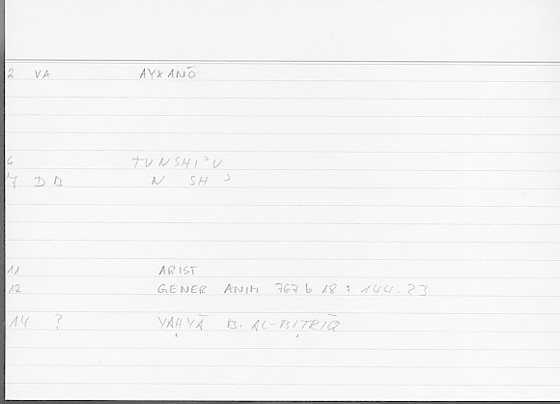 2 VA AYXANŌ
6 TUNSHIʾU
7 DB N SH ʾ
11 ARIST
12 GENER ANIM 767 b 18 : 144.23
14 ? YAḤYĀ B. AL-BIṬRĪQ